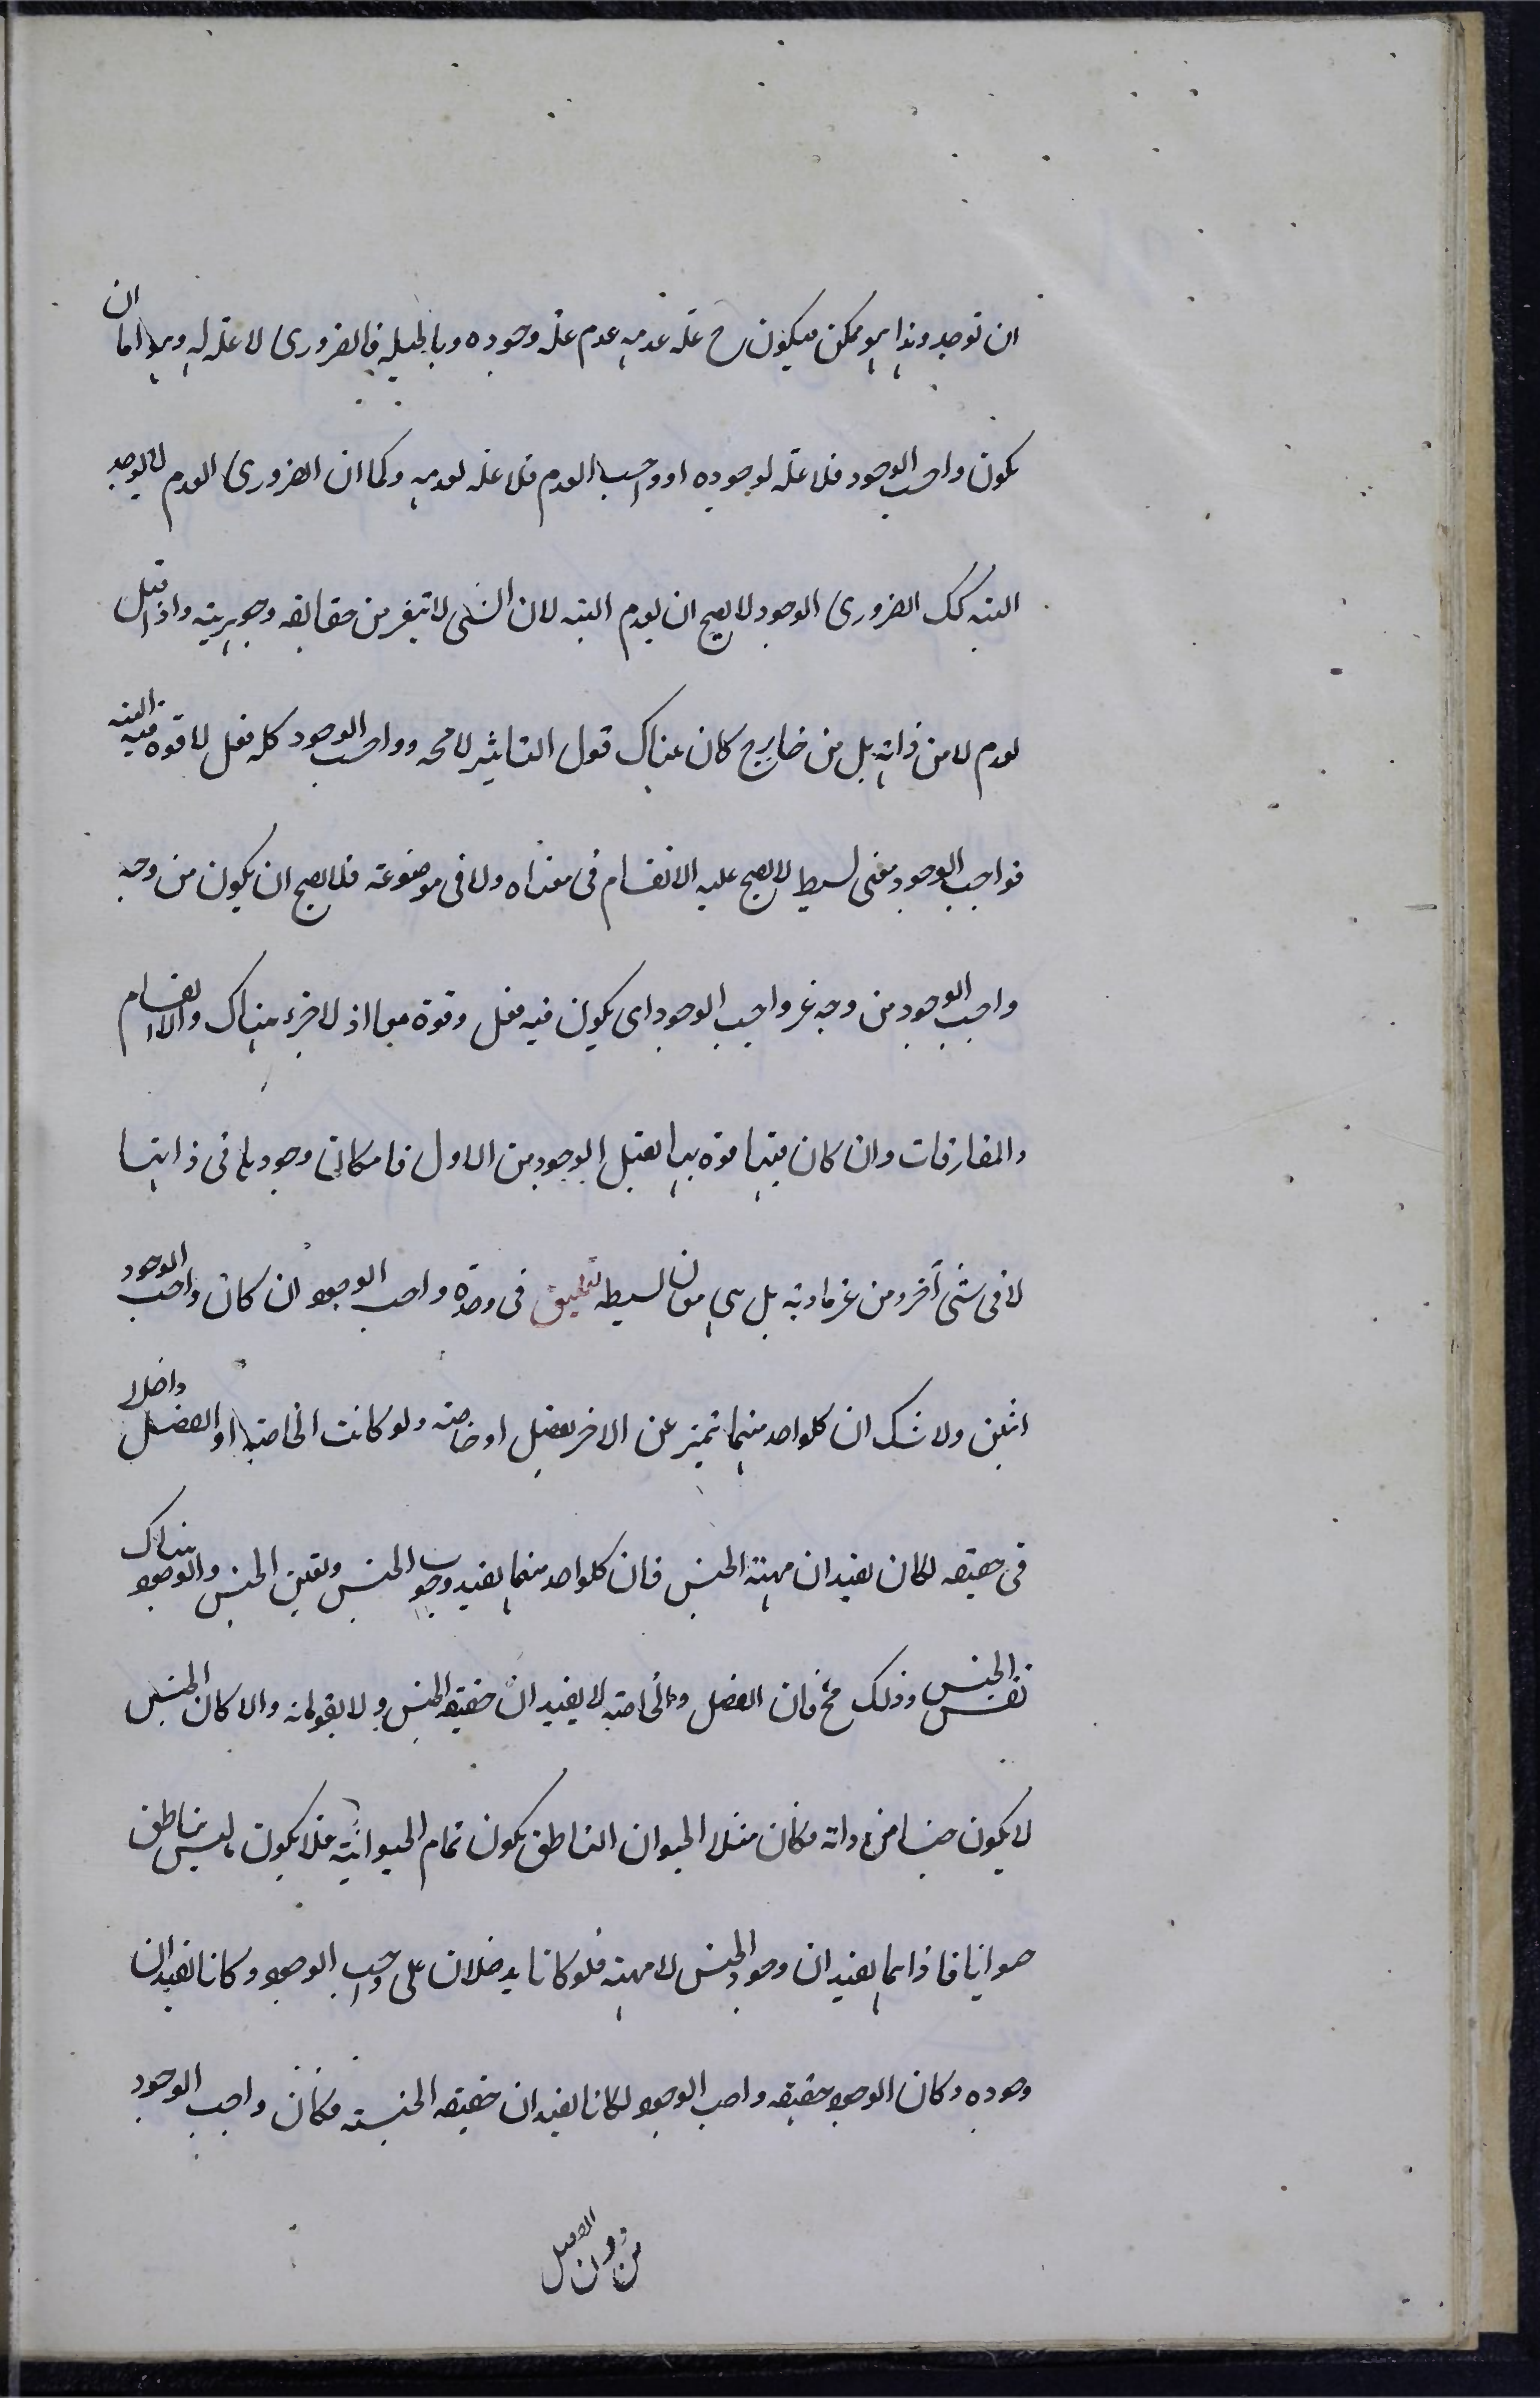 ان توجد وهذا هو ممكن فيكون ح علة عدمه عدم علة وجوده وبالجملة فالضرورى لا علة له وهو اما ان
يكون واجب الوجود فلا علة لوجوده او واجب العدم فلا علة لعدمه وكما ان الضرورى العدم لا يوجد
البتة كك الضرورى الوجود لا يصح ان يعدم البتة لان الشى لا تتغير من حقايقه وجوهريته واذا قيل
يعدم لا من ذاته بل من خارج كان هناك قبول التاثير لا محه وواجب الوجود كله فعل لا قوة فيه البتة
فواجب الوجود معنى بسيط لا يصح عليه الانقسام فى معناه ولا فى موضوعته فلا يصح ان يكون من وجه
واجب الوجود من وجه غير واجب الوجود اى يكون فيه فعل وقوة معا اذ لا جزء هناك والا انقسام
والمفارقات وان كان فيها قوة بها يقبل الوجود من الاول فامكان وجودها فى ذاتها
لا فى شى آخر ومن غير مادة بل هى معان بسيطة تعليق فى وحدة واجب الوجود ان كان واجب الوجود
اثنين ولا شك ان كلواحد منهما تميز عن الاخر بفصل او خاصة ولو كانت الخاصة او الفصل داخلا
فى حقيقة لكان يفيدان مهية الجنس فان كلواحد منهما يفيد وجود الجنس وتعين الجنس والوجود هناك
نفس الجنس وذلك مح فان الفصل والخاصة لا يفيدان حقيقة الجنس ولا يقومانه والا كان الجنس
لا يكون جنسا من ذاته فكان مثلا الحيوان الناطق يكون تمام الحيوانية فلا يكون ما ليس بناطق
حيوانا فاذا هما يفيدان وجود الجنس لا مهيته فلو كانا يدخلان على واجب الوجود وكانا يفيدان
وجوده وكان الوجود حقيقة واجب الوجود لكانا يفيدان حقيقة الجنسية فكان واجب الوجود
من دون الفصل